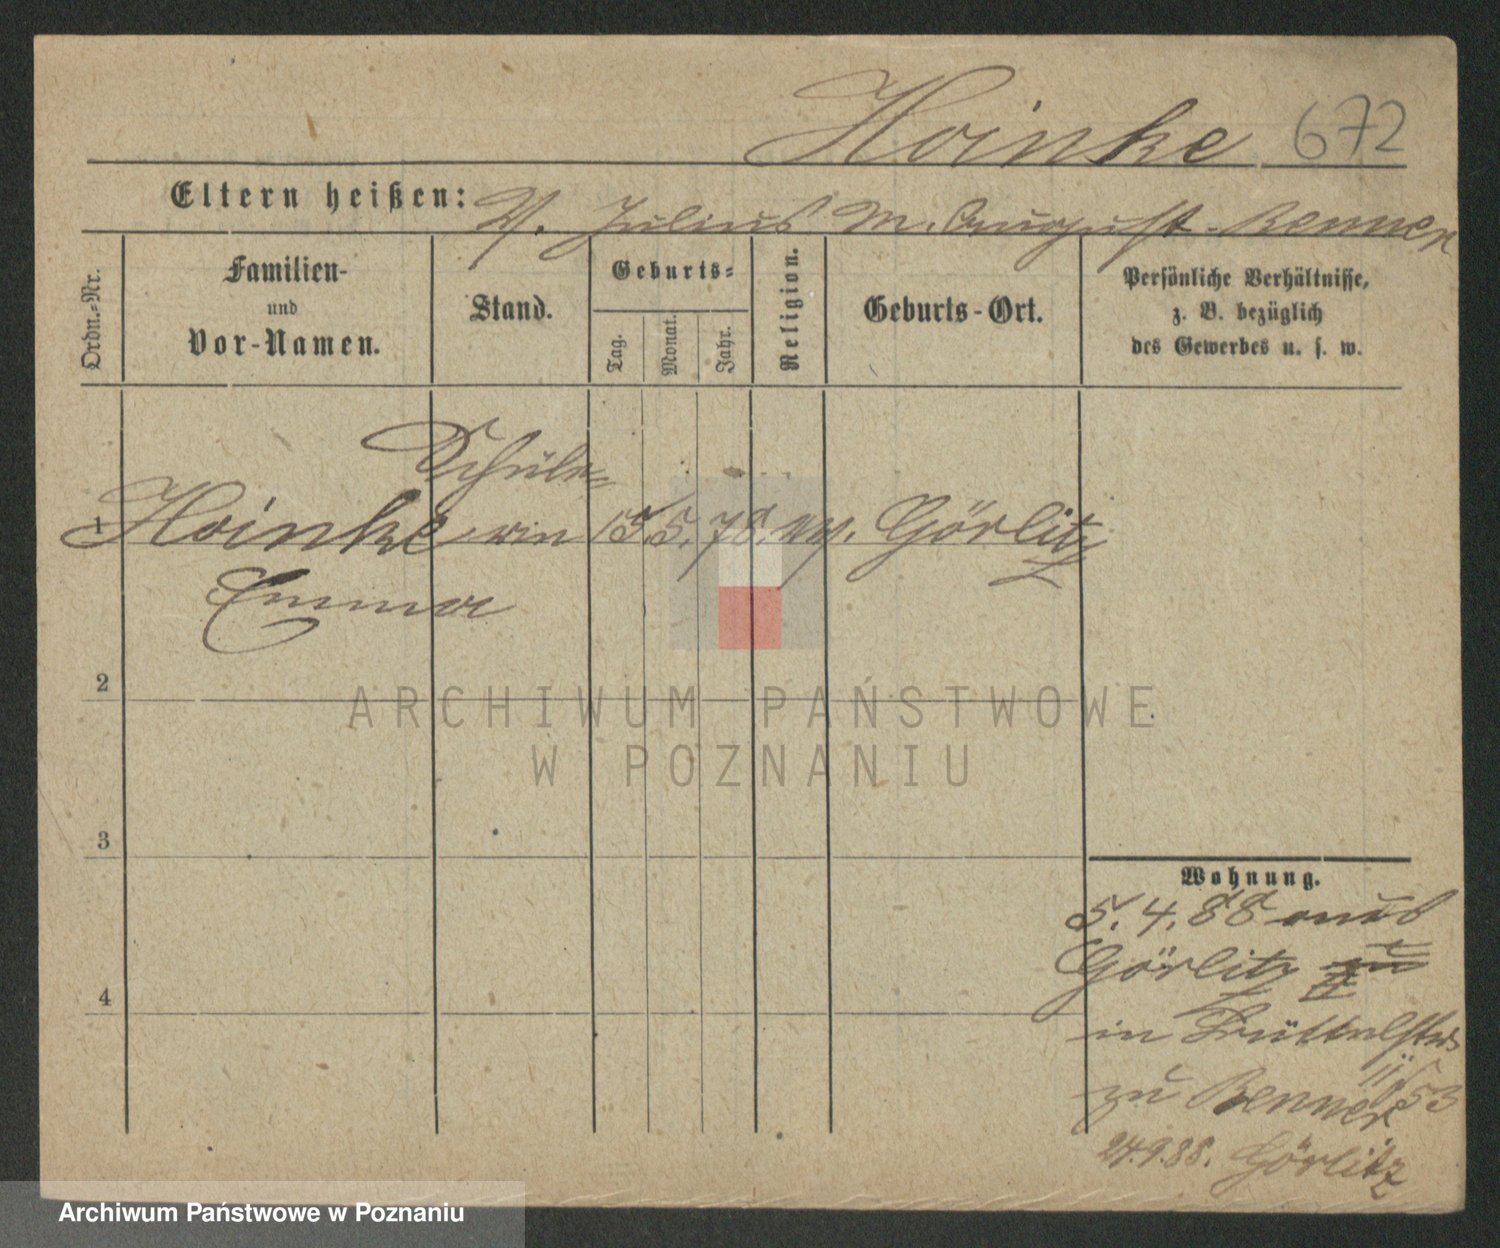 Hoinke 672
Eltern heißen: V. Julius M. August. Renner
Ordn.-Nr.
Familien-
und
Vor-Namen.
Stand.
Geburts-
Tag.
Monat.
Jahr.
Religion.
Geburts-Ort.
Persönliche Verhältnisse,
z. B. bezüglich
des Gewerbes u. s. w.
Schüle-
1 Hoinke rin 15. 5. 78. ev. Görlitz
Emma
2
3
4
Wohnung.
5. 4. 88 aus
Görlitz
in
zu Renner 53
24.9.88. Görlitz
ARCHIWUM PAŃSTWOWE
W POZNANIU
Archiwum Państwowe w Poznaniu